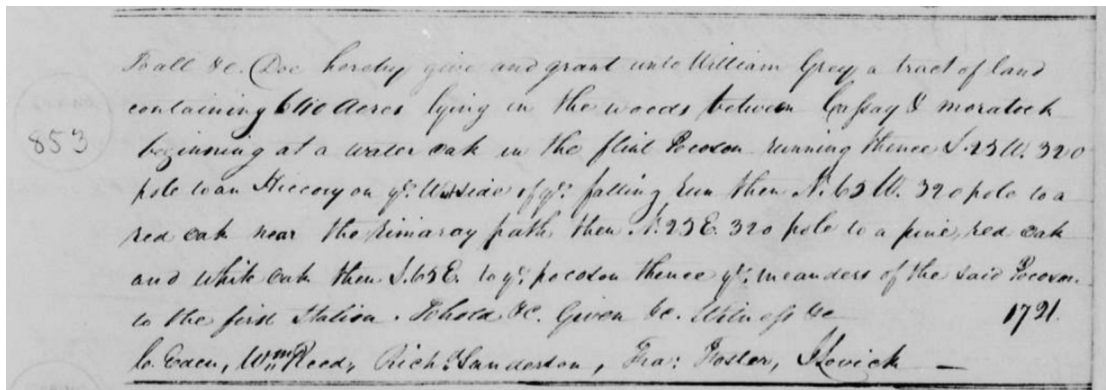 To all &c. Doe hereby give and grant unto William Grey a tract of land
containing 640 Acres lying in the woods between Cassay & moratock
853
beginning at a water oak in the flint Pocoson running thence S. 25 W. 320
pole to an Hiccory on ye. Wt side of ye. falling Run then N. 65 W. 320 pole to a
red oak near the path then N. 25 E. 320 pole to a pine, red oak
and white oak then S. 65 E. to ye. pocoson thence ye. meanders of the said Pocoson
to the first Station. Tohold &c. Given &c. Witness &c 1721.
C. Eden, Wm. Reed, Richd. Sanderson, Fra: Foster, J Lovick